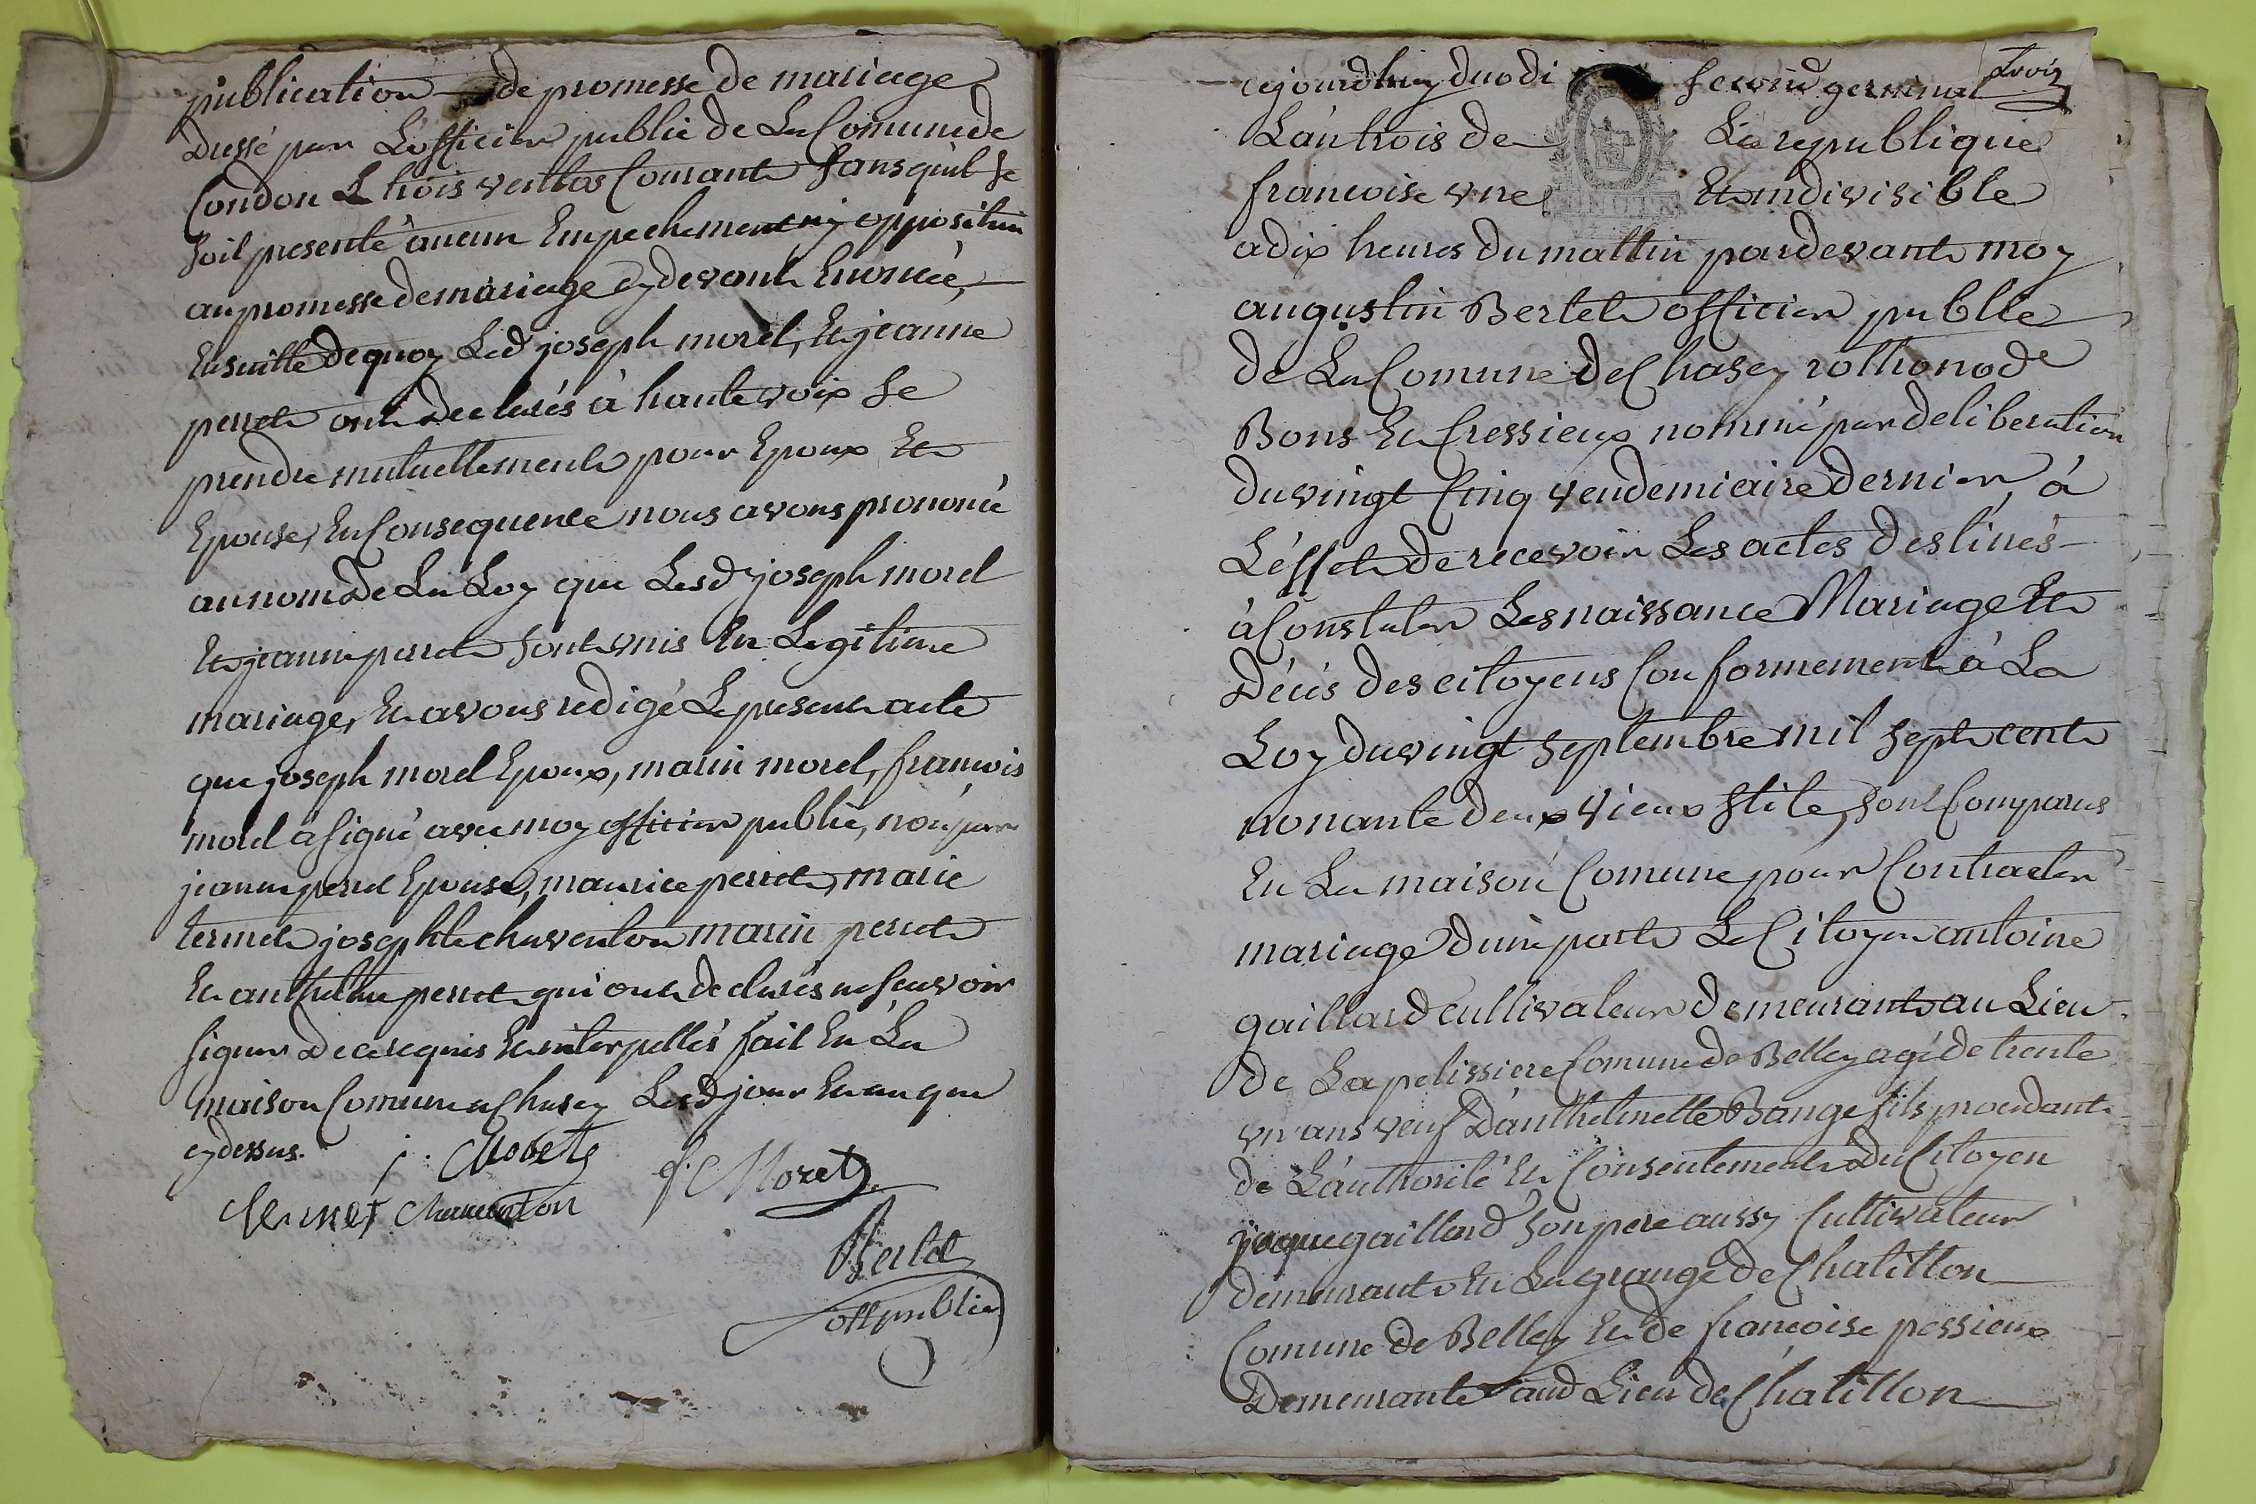 publication de promesse de mariage
Dussé par Lofficier public de La Comune de
Condon Le trois ventos Courant sans quil se
soit presenté aucun Empechement ny opposition
au promesse de mariage cy devant Enoncée,
Ensuitte de quoy Led joseph morel, Et jeanne
perret ont declarés à haute voix se
prendre mutuellement pour Epoux Et
Epouse, En Consequence nous avons prononcé
au nom de La Loy que Lesd joseph morel
Et jeanne perret sont unis En Legitime
mariage, Et avons redigé Le present acte
que joseph morel Epoux, marin morel, francois
morel à signé avec moy officier public, non par
jeanne perret Epouse, maurice perret, marie
termet joseph chaventon marin perret
Et anthelme perret qui ont declarés ne scavoir
signer de ce requis Et interpellés fait En La
maison Comune a Chasey Lesd jour Et an que
cy dessus.
j. Morel
f. Morel
chaventon
Bertet
off public
trois
cejourdhuy duodi second germinal
Lan trois de La republique
francoise vne Et indivisible
a dix heures du mattin pardevant moy
augustin Bertet officier public
de La Comune de Chasey rothonod
Bons Et Cressieux nommé par deliberation
du vingt Cinq vendemiaire dernier, à
Léffet de recevoir Les actes destinés
à Constater Les naissance Mariage Et
Décés des citoyens Conformement à La
Loy du vingt septembre mil sept cent
nonante deux vieux stile, sont Comparus
En La maison Comune pour Contracter
mariage d'une part Le Citoyen antoine
gaillard cultivateur demeurant au Lieu
de La pelissiere Comune de Belley agé de trente
vn ans veuf D'anthelmette Bange fils procedant
de L'authorité Et Consentement du Citoyen
jaque gaillard son pere aussy Cultivateur
demeurant En La grange de Chatillon
Comune de Belley Et de francoise pessieux
Demeurante aud Lieu de Chatillon